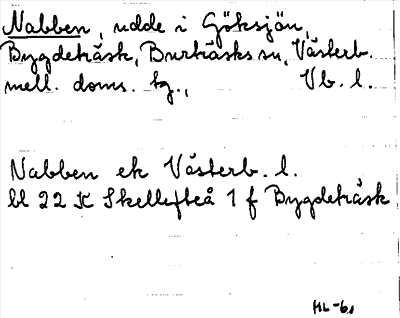 Nabben, udde i Göksjön,
Bygdeträsk, Burträsks sn, Västerb.
mell. doms. tg., Vb. l.
Nabben ek Västerb. l.
bl 22 K Skellefteå 1 f Bygdeträsk